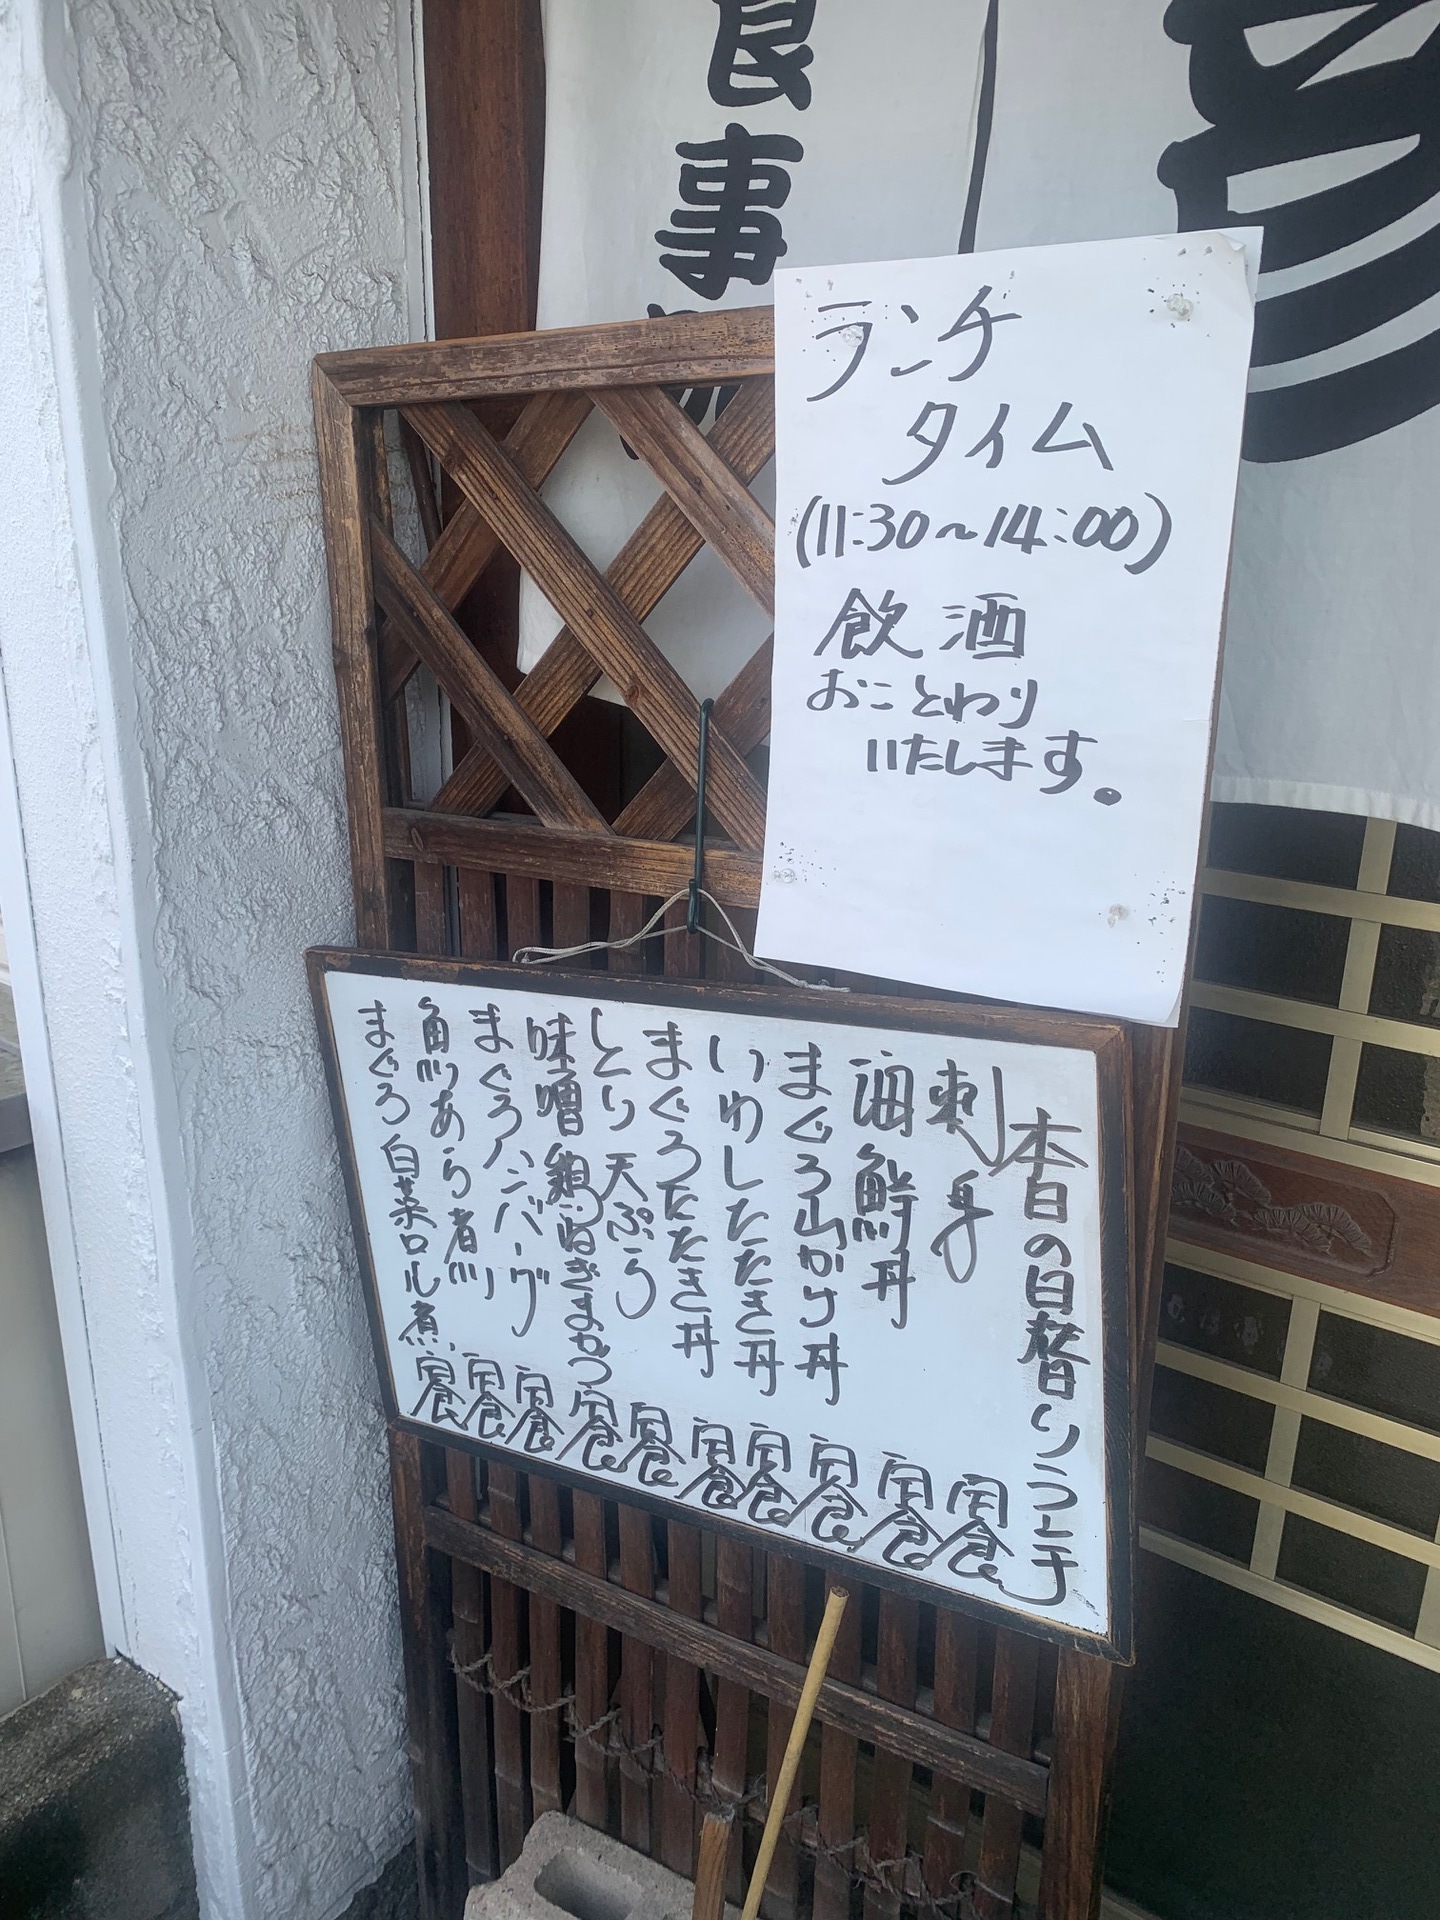 食事
ランチ
タイム
(11:30〜14:00)
飲酒
おことわり
いたします。
本日の日替りランチ
刺身 定食
海鮮丼 定食
まぐろ山かけ丼 定食
いわしたたき丼 定食
まぐろたたき丼 定食
とり天ぷら 定食
味噌 ねぎまかつ 定食
まぐろハンバーグ 定食
魚あら煮 定食
まぐろ白菜ロール煮 定食